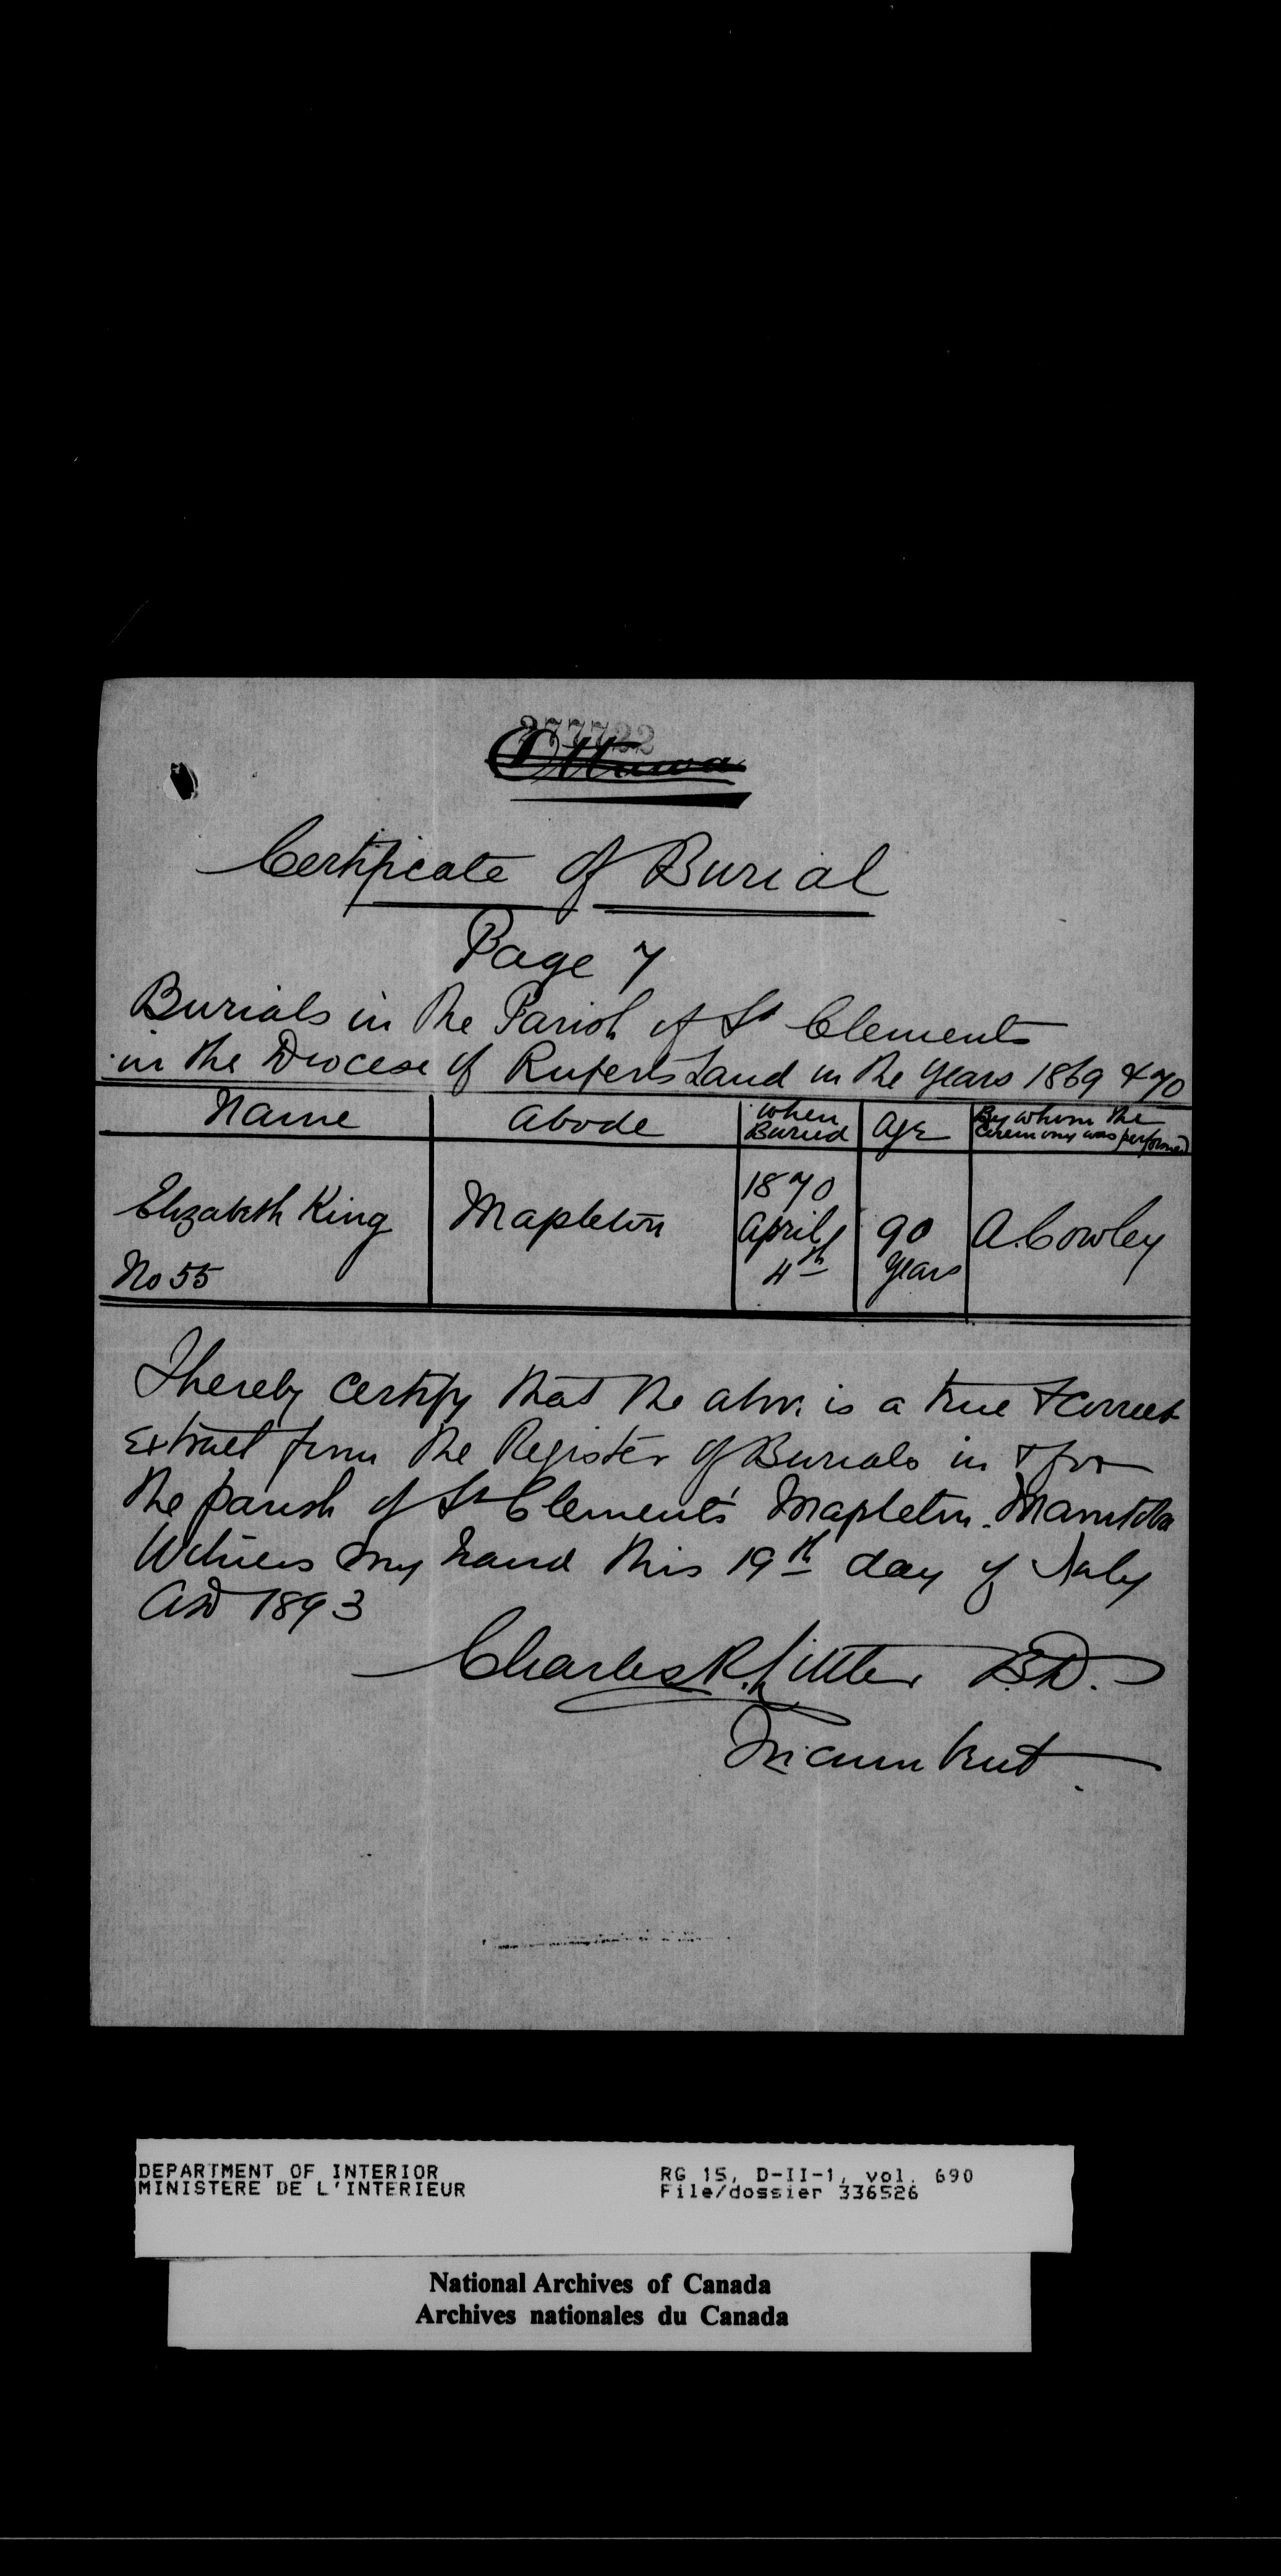 377722
Ottawa
Certificate of Burial
Page 7
Burials in the Parish of St Clements
in the Diocese of Ruperts Land in the years 1869 & 70
Name | Abode | When Buried | Age | By whom the Ceremony was performed
Elizabeth King No 55 | Mapleton | 1870 April 4th | 90 years | A. Cowley
I hereby certify that the above is a true & correct
extract from the Register of Burials in & for
the parish of St Clement's Mapleton. Manitoba
Witness my hand this 19th day of July
AD 1893
Charles R. Littler B.D.
Incumbent
DEPARTMENT OF INTERIOR
MINISTERE DE L'INTERIEUR
RG 15, D-II-1, vol. 690
File/dossier 336526
National Archives of Canada
Archives nationales du Canada